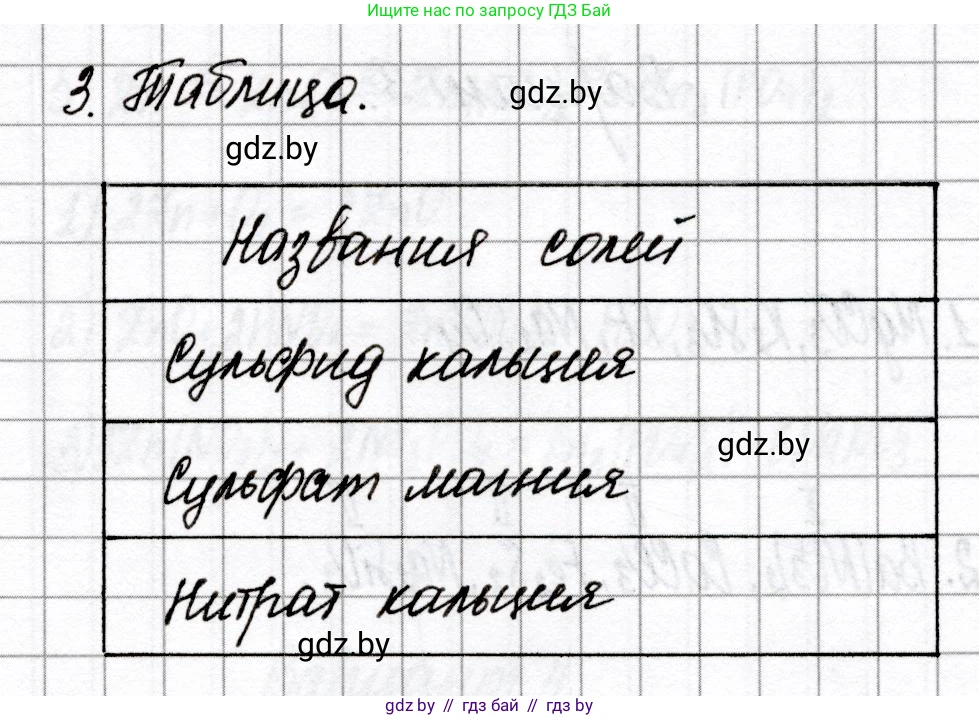 Ищите нас по запросу ГДЗ Бай
3. Таблица.
gdz.by
gdz.by
Названия солей
Сульфид кальция
gdz.by
Сульфат магния
Нитрат кальция
gdz.by
gdz.by // гдз бай // гдз by